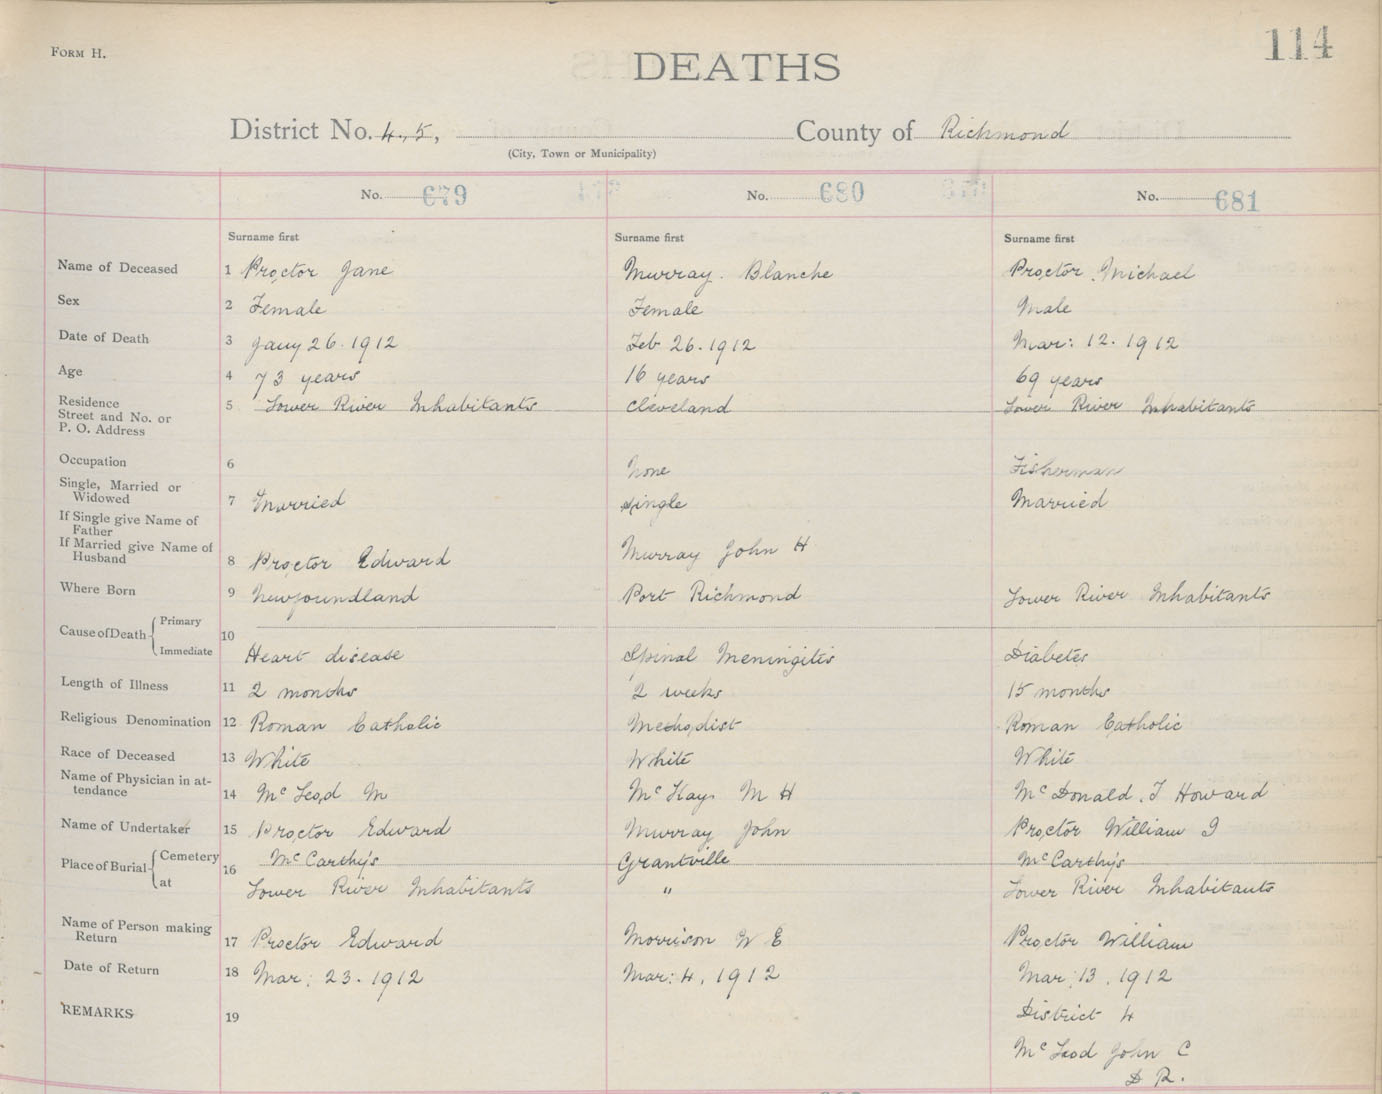 FORM H.
DEATHS
114
District No. 4., 5, County of Richmond
(City, Town or Municipality)
No. 679 No. 680 No. 681
Surname first Surname first Surname first
Name of Deceased 1 Proctor Jane Murray. Blanche Proctor. Michael
Sex 2 Female Female Male
Date of Death 3 Jany 26. 1912 Feb 26. 1912 Mar: 12. 1912
Age 4 73 years 16 years 69 years
Residence
Street and No. or
P. O. Address
5 Lower River Inhabitants Cleveland Lower River Inhabitants
Occupation 6 None Fisherman
Single, Married or
Widowed 7 Married Single Married
If Single give Name of
Father
If Married give Name of
Husband 8 Proctor Edward Murray John H
Where Born 9 Newfoundland Port Richmond Lower River Inhabitants
Cause of Death Primary
Immediate 10 Heart disease Spinal Meningitis Diabetes
Length of Illness 11 2 months 2 weeks 15 months
Religious Denomination 12 Roman Catholic Methodist Roman Catholic
Race of Deceased 13 White White White
Name of Physician in at-
tendance 14 McLeod M McKay M H McDonald. J Howard
Name of Undertaker 15 Proctor Edward Murray John Proctor William J
Place of Burial Cemetery 16 McCarthy's Grantville McCarthy's
at Lower River Inhabitants " Lower River Inhabitants
Name of Person making
Return 17 Proctor Edward Morrison W E Proctor William
Date of Return 18 Mar: 23. 1912 Mar: 4, 1912 Mar: 13, 1912
REMARKS 19 District 4
McLeod John C
D R.